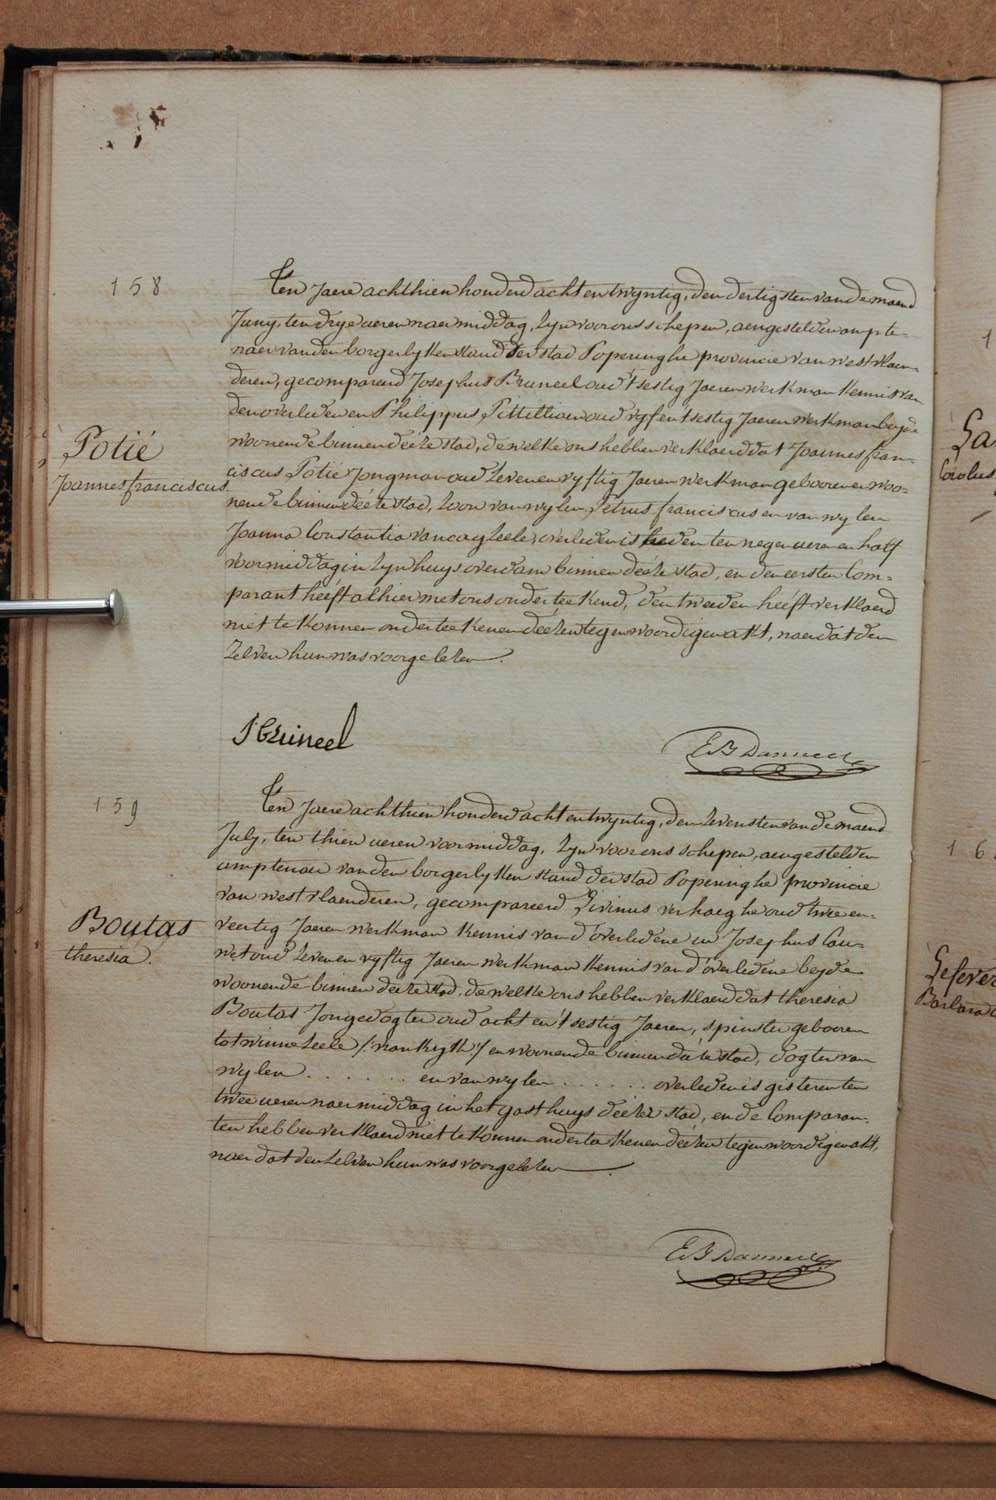 158
Ten Jaere achthien honderd acht en twyntig, den dertigsten van de maend
Juny, ten drye ueren naer middag, Zyn voor ons schepen, aengestelden ampte-
naer van den borgerlyken stand der stad Poperinghe provincie van westvlaen-
deren, gecomparend Josephus Bruneel oud 't sestig Jaeren werkman Kennis van
den overledenen Philippus Pittillion oud vyf en t sestig Jaeren werkman beyde
Potié
woonende binnen deéze stad, de welke ons hebben verklaerd dat Joannes fran-
Joannes franciscus
ciscus Potie Jongman oud Zeven en vyftig Jaeren werkman gebooren en woo-
nende binnen deéze stad, Zoon van wylen Petrus franciscus en van wylen
Joanna Constantia vancayzeele, overleden is heden ten negen ueren en half
voormiddag in Zyn huys overdam binnen deéze stad, en den eersten Com-
parant heéft alhier met ons onderteekend, den tweeden heéft verklaerd
niet te konnen onderteekenen deézen tegenwoordigen akt, naer dat den
Zelven hun was voorgelezen.
J Bruneel
E B Danneel
159
Ten Jaere achthien honderd acht en twyntig, den Zevensten van de maend
July, ten thien ueren voormiddag, Zyn voor ons schepen, aengestelden
amptenaer van den borgerlyken stand der stad Poperinghe provincie
van westvlaenderen, gecompareerd Livinus verhaeghe oud twee en-
Boutas
veertig Jaeren werkman Kennis van d'overledene en Josephus Cau-
theresia.
wet oud Zeven en vyftig Jaeren werkman Kennis van d'overledene beyde
woonende binnen deéze stad, de welke ons hebben verklaerd dat theresia
Boutas Jongedogter oud acht en 't sestig Jaeren, spinster gebooren
tot winnezeele /: vrankryk :/ en woonende binnen deéze stad, dogter van
wylen . . . . . . en van wylen . . . . . . overleden is gisteren ten
twee ueren naermiddag in het gasthuys deézer stad, en de Comparan-
ten hebben verklaerd niet te konnen onderteekenen deézen tegenwoordigen akt,
naer dat den Zelven hun was voorgelezen.
E B Danneel